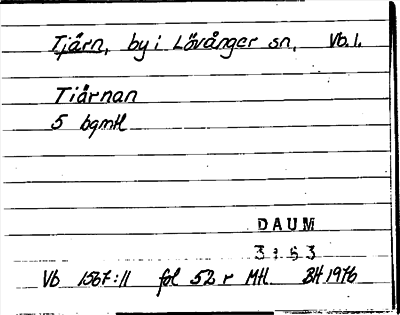 Tjärn, by i Lövånger sn, Vb. l.
Tiårnan
5 bgmtl
DAUM
3:53
Vb 1567:11 fol 52 r Mtl. BH 1976